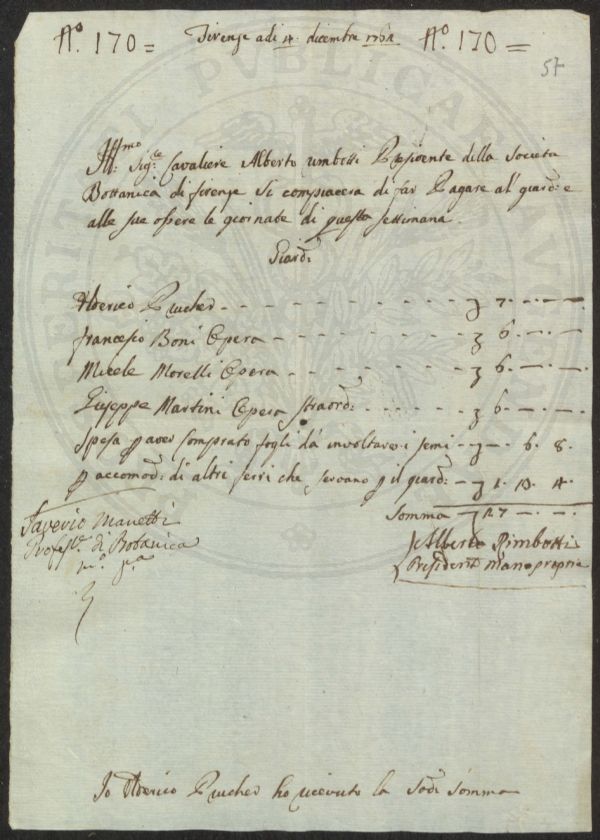 N.o 170 = Firenze adi 4 dicembre 1762 N.o 170 =
57
Ill:mo Sig:re Cavaliere Alberto Umbotti Presidente della Societa
Bottanica di firenze Si compiacera di far Pagare al' giard:e
alle sue opere le giornate di questa settimana.
Giard:
Ulderico Prucher - - - - - - - - - - 7. — —
francescho Boni Opera - - - - - - - - 6. — —
Micele Morelli Opera - - - - - - - - 6. — —
Giuseppe Martini Opera straord: - - - - - 6 — —
Spesa p aver Comprato fogli da involtare i semi - - — 6. 8.
p accomod: di altri ferri che servano p il giard: - 1. 13. 4.
Somma 27 — —
Saverio Manetti
Profess.e di Botanica
m.o p.a
Alberto Rimbotti
Presidente Mano propria
Io Ulderico Prucher ho ricevuto la Sod: Somma